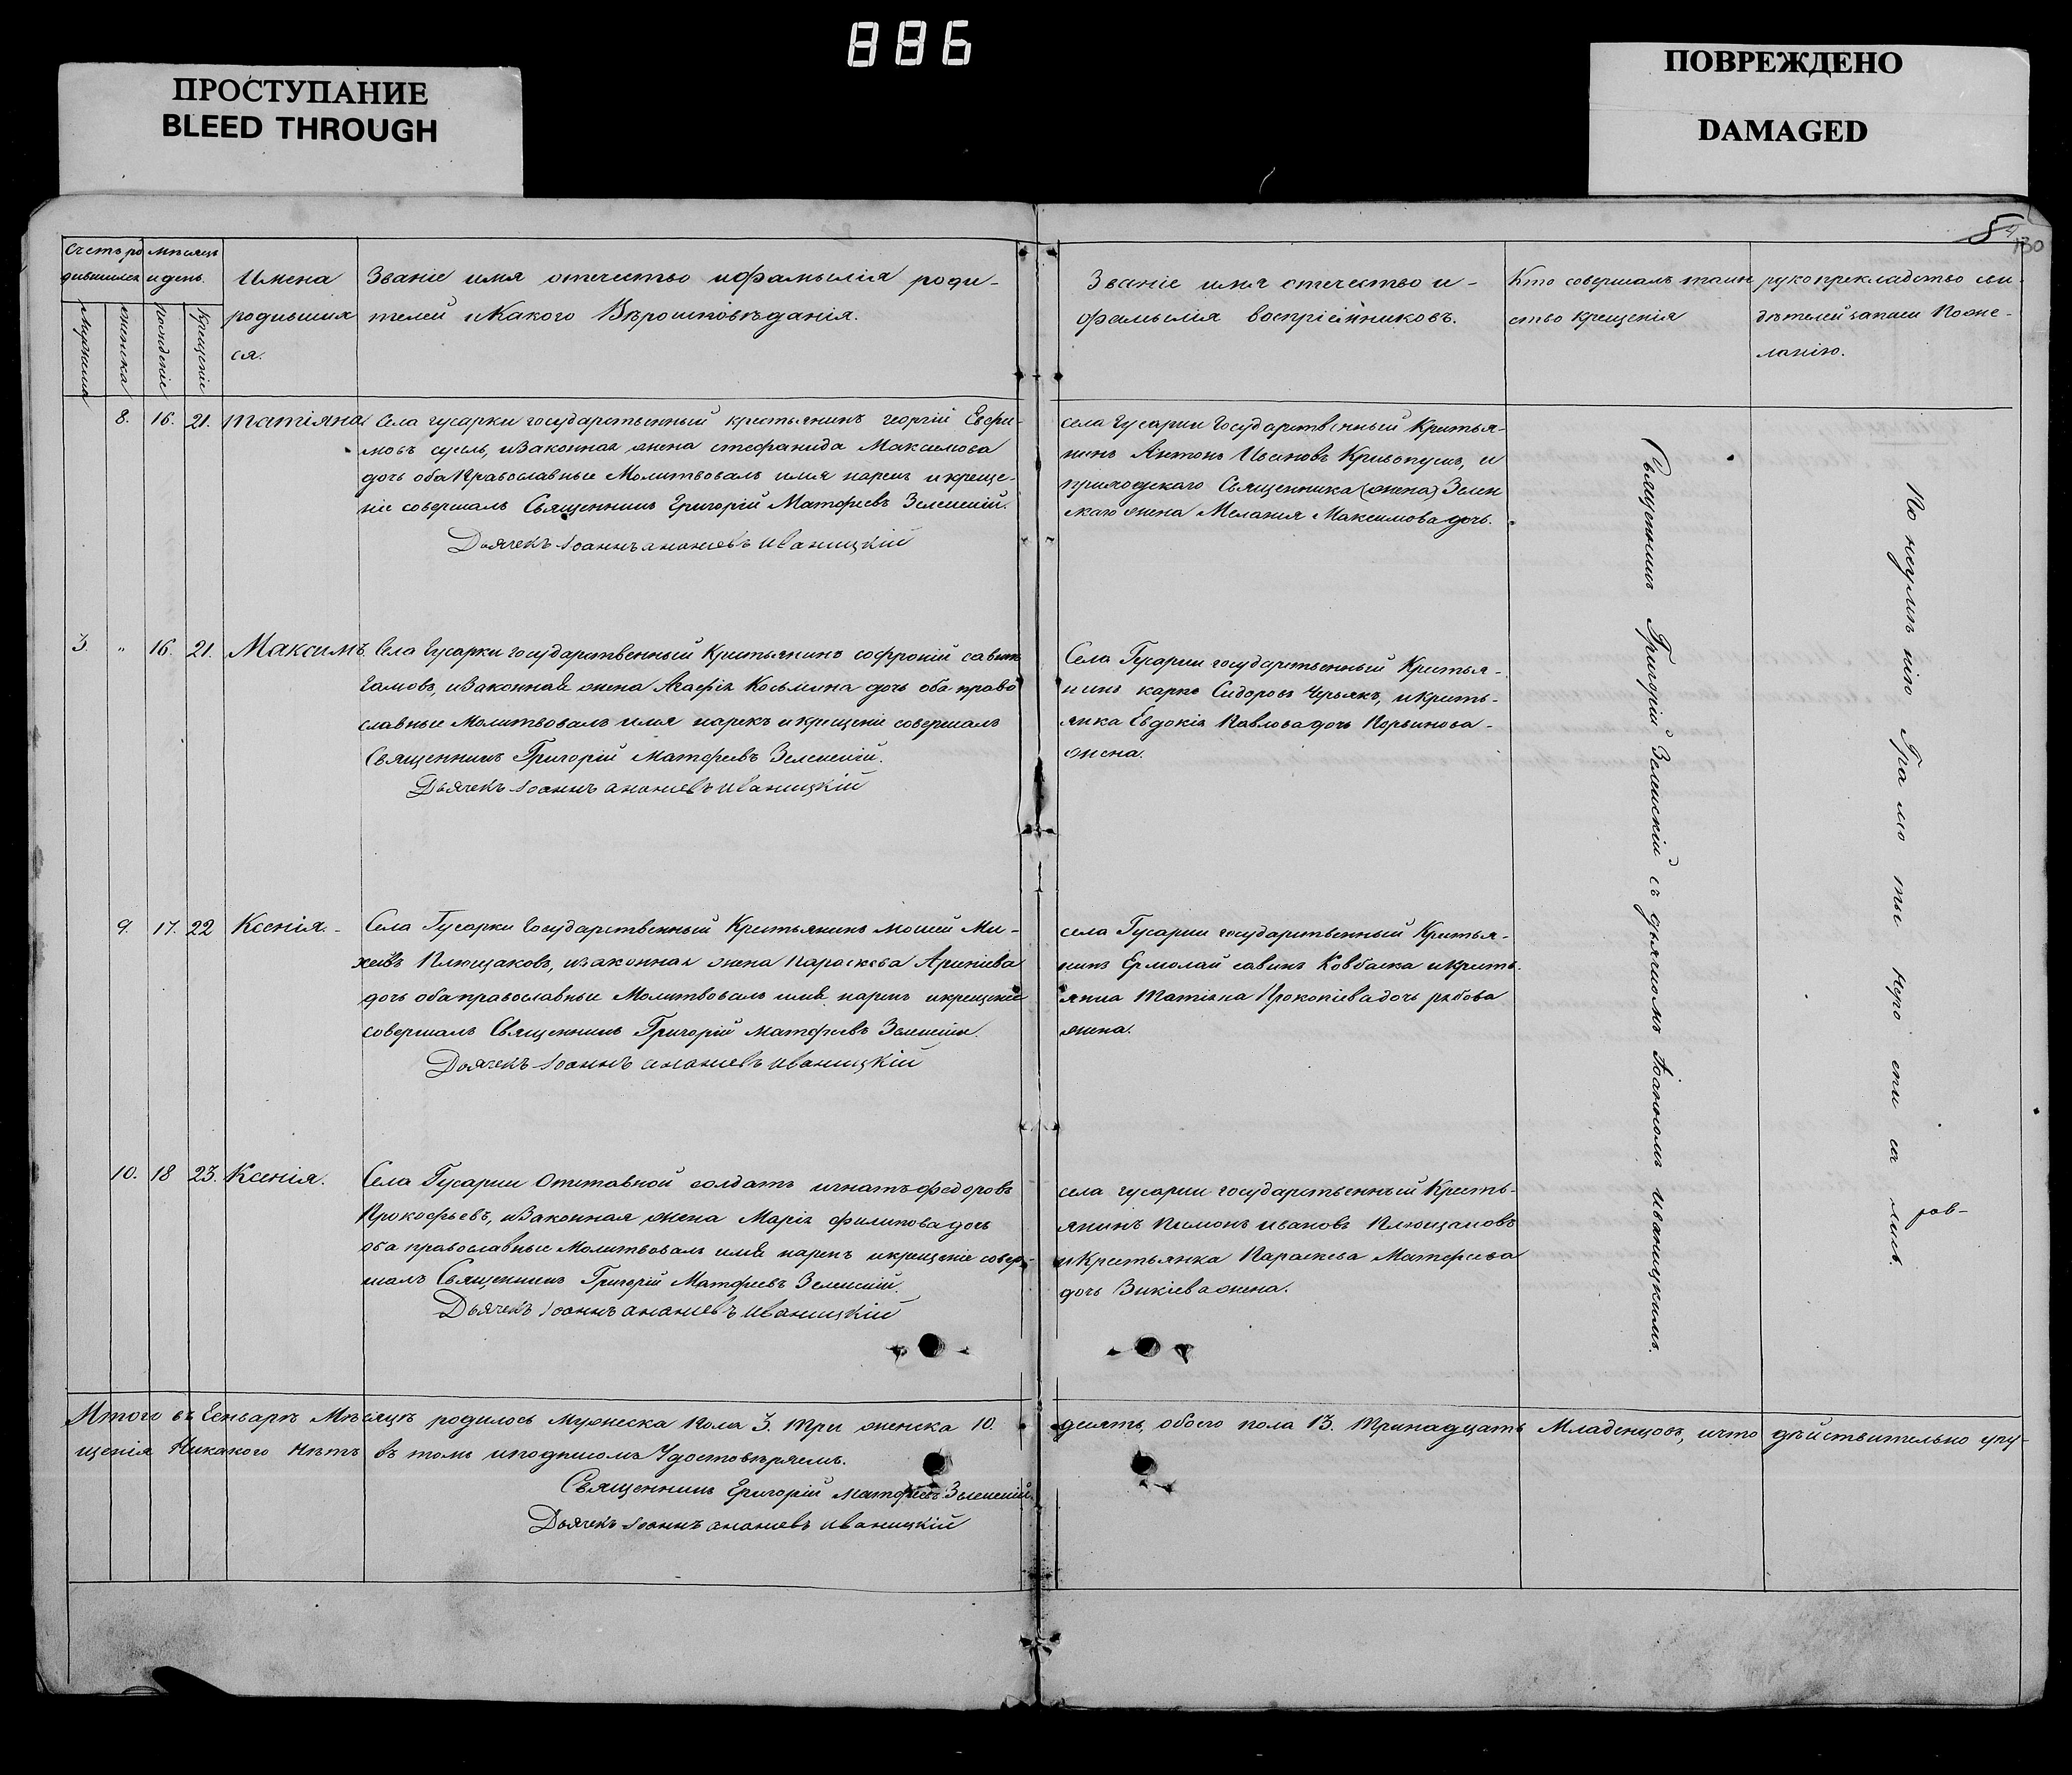 886
ПРОСТУПАНИЕ
BLEED THROUGH
ПОВРЕЖДЕНО
DAMAGED
130
Счетъ ро
дившихся
мѣсяцъ
и день.
Имена
родивших
ся.
Званіе имя отечество и фамылія роди-
телей и Какого Вѣроисповѣданія.
Званіе имя отечество и-
фамылія воспріемниковъ.
Кто совершалъ таин
ство крещенія
рукоприкладство сви-
дѣтелей записи По же-
ланію.
8. 16. 21. Татіяна
Села гусарки государственный крестьянинъ георгій Евфи-
мовъ, изаконная жена стефанида Максимова
дочь оба Православные Молитвовалъ имя нарекъ и креще-
ніе совершалъ Священникъ Григорій Матфеевъ Зеленскій.
Дьячекъ Іоаннъ ананіевъ иваницкій
села Гусарки Государственный Крестья-
нинъ Антонъ Ивановъ и
приходскаго Священника (жена) Зелен
скаго жена Мелания Максимова дочь.
3. " 16. 21. Максимъ
Села Гусарки государственный Крестьянинъ софроній
изаконная жена Агафія дочь оба право
славные Молитвовалъ имя нарекъ и крещеніе совершалъ
Священникъ Григорій Матфеевъ Зеленскій.
Дьячекъ Іоаннъ ананіевъ иваницкій
Села Гусарки государственный Крестья-
нинъ карпъ Сидоровъ Червякъ, и кресть-
янка Евдокія Павлова дочь
жена.
9. 17. 22 Ксенія.-
Села Гусарки Государственный Крестьянинъ мосей Ми-
хеевъ Плющаковъ, изаконная жена параскева
дочь оба православные Молитвовалъ имя нарекъ и крещеніе
совершалъ Священникъ Григорій матфеевъ Зеленскій.
Дьячекъ Іоаннъ ананіевъ иваницкій
села Гусарки государственный Крестья-
нинъ Ермолай савинъ Ковбаска и кресть-
янка Татіяна Прокопіева дочь рябова
жена.
10. 18 23. Ксенія.
Села Гусарки Отставной солдатъ игнатъ федоровъ
Прокофьевъ, изаконная жена Марія филипова дочь
оба православные Молитвовалъ имя нарекъ и крещеніе совер-
шалъ Священникъ Григорій Матфеевъ Зеленскій.
Дьячекъ Іоаннъ ананіевъ иваницкій
села гусарки государственный Кресть-
янинъ ивановъ Плющаковъ
и Крестьянка Параскева Матфеева
дочь Зикіева жена.
Священникъ Григорій Зеленскій съ дьячкомъ Іоанномъ Иваницкимъ.
По неумѣнію Грамоты
Итого въ Генварѣ Мѣсяцѣ родилось Мужеска пола 3. Три женска 10. десять, обоего пола 13. Тринадцать Младенцовъ, и что дѣйствительно упу-
щенія Никакого Нѣтъ въ томъ и подписомъ Удостовѣряемъ.
Священникъ Григорій матфеевъ Зеленскій.
Дьячекъ Іоаннъ ананіевъ иваницкій